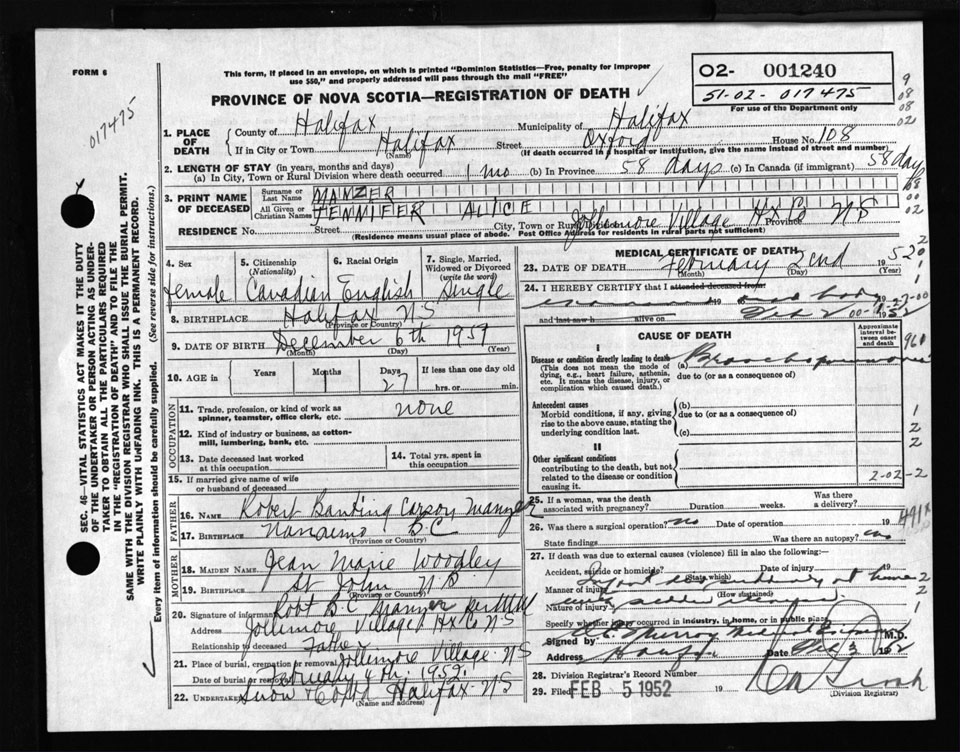 FORM 6
This form, if placed in an envelope, on which is printed "Dominion Statistics—Free, penalty for improper
use $50," and properly addressed will pass through the mail "FREE"
PROVINCE OF NOVA SCOTIA—REGISTRATION OF DEATH
02- 001240
51-02-017475
For use of the Department only
9
08
08
02
017475
1. PLACE OF DEATH
County of Halifax Municipality of Halifax
If in City or Town Halifax Street Oxford House No. 108
(Name) (If death occurred in a hospital or institution, give the name instead of street and number)
2. LENGTH OF STAY (in years, months and days)
(a) In City, Town or Rural Division where death occurred 1 mo (b) In Province 58 days (c) In Canada (if immigrant) 58 days
3. PRINT NAME OF DECEASED
Surname or Last Name MANZER
All Given or Christian Names JENNIFER ALICE
RESIDENCE No. Street City, Town or Rural Jollimore Village Hx Co Province NS
(Residence means usual place of abode. Post Office Address for residents in rural parts not sufficient)
4. Sex female
5. Citizenship (Nationality) Canadian
6. Racial Origin English
7. Single, Married, Widowed or Divorced (write the word) Single
8. BIRTHPLACE Halifax NS
(Province or Country)
9. DATE OF BIRTH December 6th 1951
(Month) (Day) (Year)
10. AGE in Years Months 1 Days 27 If less than one day old
hrs. or min.
OCCUPATION
11. Trade, profession, or kind of work as spinner, teamster, office clerk, etc. none
12. Kind of industry or business, as cotton-mill, lumbering, bank, etc.
13. Date deceased last worked at this occupation
14. Total yrs. spent in this occupation
15. If married give name of wife or husband of deceased
FATHER
16. Name Robert Banting Carson Manzer
17. Birthplace Nanaimo B.C.
(Province or Country)
MOTHER
18. Maiden Name Jean Marie Woodley
19. Birthplace St John N.B.
(Province or Country)
20. Signature of informant Robt B.C. Manzer
Address Jollimore Village Hx Co NS
Relationship to deceased Father
21. Place of burial, cremation or removal Jollimore Village NS
Date of burial or removal February 4th 1952
22. Undertaker Snow + Co Ltd Halifax NS
(Name and address)
MEDICAL CERTIFICATE OF DEATH
23. DATE OF DEATH February 2nd 1952
(Month) (Day) (Year)
24. I HEREBY CERTIFY that I attended deceased from
19 dead body 19
and last saw h alive on Feb 2 1952
CAUSE OF DEATH
Approximate interval between onset and death
I
Disease or condition directly leading to death
(This does not mean the mode of dying, e.g., heart failure, asthenia, etc. It means the disease, injury, or complication which caused death.)
(a) Bronchopneumonia
due to (or as a consequence of)
Antecedent causes
Morbid conditions, if any, giving rise to the above cause, stating the underlying condition last.
(b)
due to (or as a consequence of)
(c)
II
Other significant conditions
contributing to the death, but not related to the disease or condition causing it.
2-02-2
25. If a woman, was the death associated with pregnancy? Duration weeks. Was there a delivery?
26. Was there a surgical operation? no Date of operation 19
491X
State findings Was there an autopsy?
27. If death was due to external causes (violence) fill in also the following:—
Accident, suicide or homicide? Date of injury 19
(State which)
Manner of injury Infant died suddenly at home
(How sustained)
Nature of injury
Specify whether injury occurred in industry, in home, or in public place
Signed by Murray Medical M.D.
Address Halifax Date Feb 3 1952
28. Division Registrar's Record Number
29. Filed FEB 5 1952 19
(Division Registrar)
SEC. 46—VITAL STATISTICS ACT MAKES IT THE DUTY
OF THE UNDERTAKER OR PERSON ACTING AS UNDER-
TAKER TO OBTAIN ALL THE PARTICULARS REQUIRED
IN THE "REGISTRATION OF DEATH" AND TO FILE THE
SAME WITH THE DIVISION REGISTRAR WHO SHALL ISSUE THE BURIAL PERMIT.
WRITE PLAINLY WITH UNFADING INK. THIS IS A PERMANENT RECORD.
Every item of information should be carefully supplied. (See reverse side for instructions.)